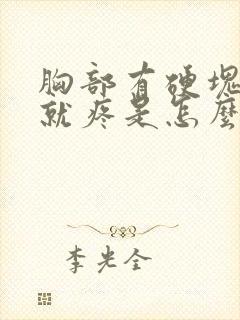 胸部有硬塊
就疼是怎麼
李光全